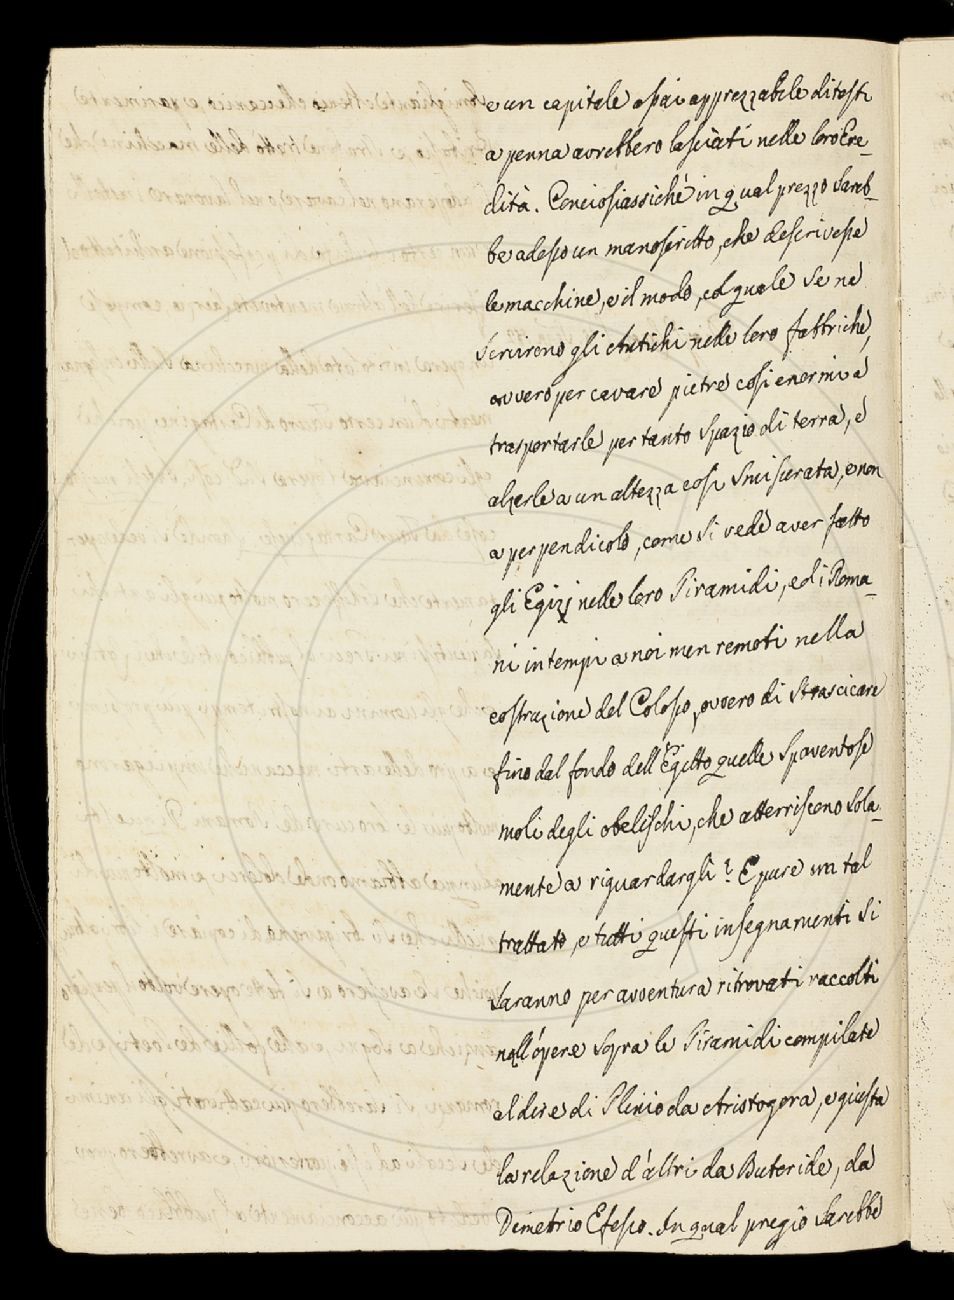 e un capitale assai apprezzabile di testi
a penna avrebbero lasciati nelle loro Ere-
dità. Conciosiassichè in qual prezzo sareb-
be adesso un manoscritto, che descrivesse
le macchine, e il modo, col quale se ne
servirono gli Antichi nelle loro fabbriche,
ovvero per cavare pietre così enormi a
trasportarle per tanto spazio di terra, e
alzarle a un altezza così smisurata, e non
a perpendicolo, come si vede aver fatto
gli Egizj nelle loro Piramidi, ed i Roma-
ni in tempi a noi men remoti nella
costruzione del Colosso, ovvero di strascicare
fino dal fondo dell' Egitto quelle spaventose
moli degli obelischi, che atterriscono sola-
mente a riguardargli? E pure un tal
trattato, e tutti questi insegnamenti si
saranno per avventura ritrovati raccolti
nell'opere sopra le Piramidi compilate
al dire di Plinio da Aristagora, e giusta
la relazione d'altri da Butoride, da
Demetrio Efesio. In qual pregio sarebbe